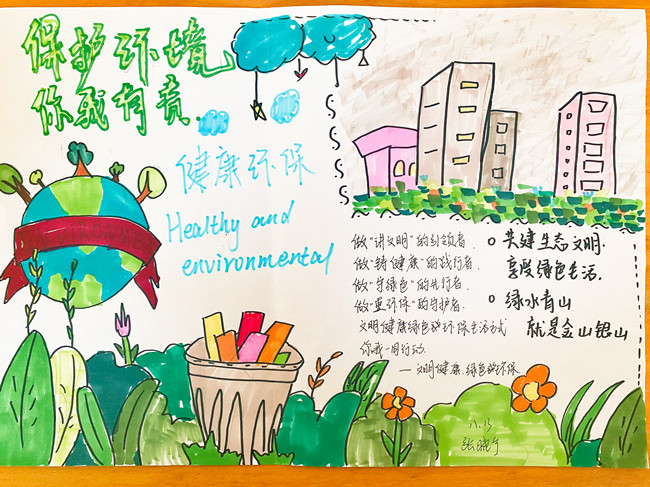 保护环境
你我有责
健康环保
Healthy and
environmental
做"讲文明"的引领者.
做"铸健康"的践行者.
做"守绿色"的先行者.
做"重环保"的守护者.
文明健康绿色环保生活方式
你我一同行动.
—文明健康.绿色环保
共建生态文明.
享受绿色生活.
绿水青山
就是金山银山